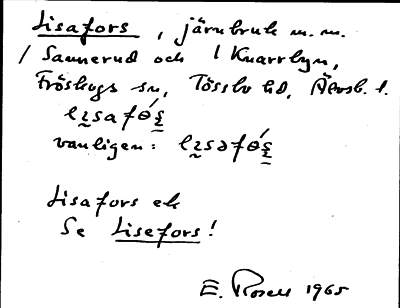 Lisafors, järnbruk m. m.
/ Sannerud och / Knarrbyn,
Fröskogs sn, Tössbo hd, Älvsb. l.
vanligen:
Lisafors ek
Se Lisefors!
E. Rosell 1965